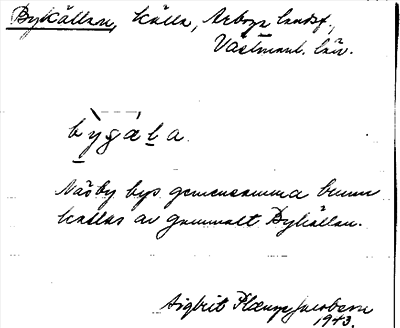 Bykällan, källa, Arboga landsf.,
Västmanl. län.
bygäla.
Näsby bys gemensamma brunn
kallas av gammalt Bykällan.
Sigbrit
1943.